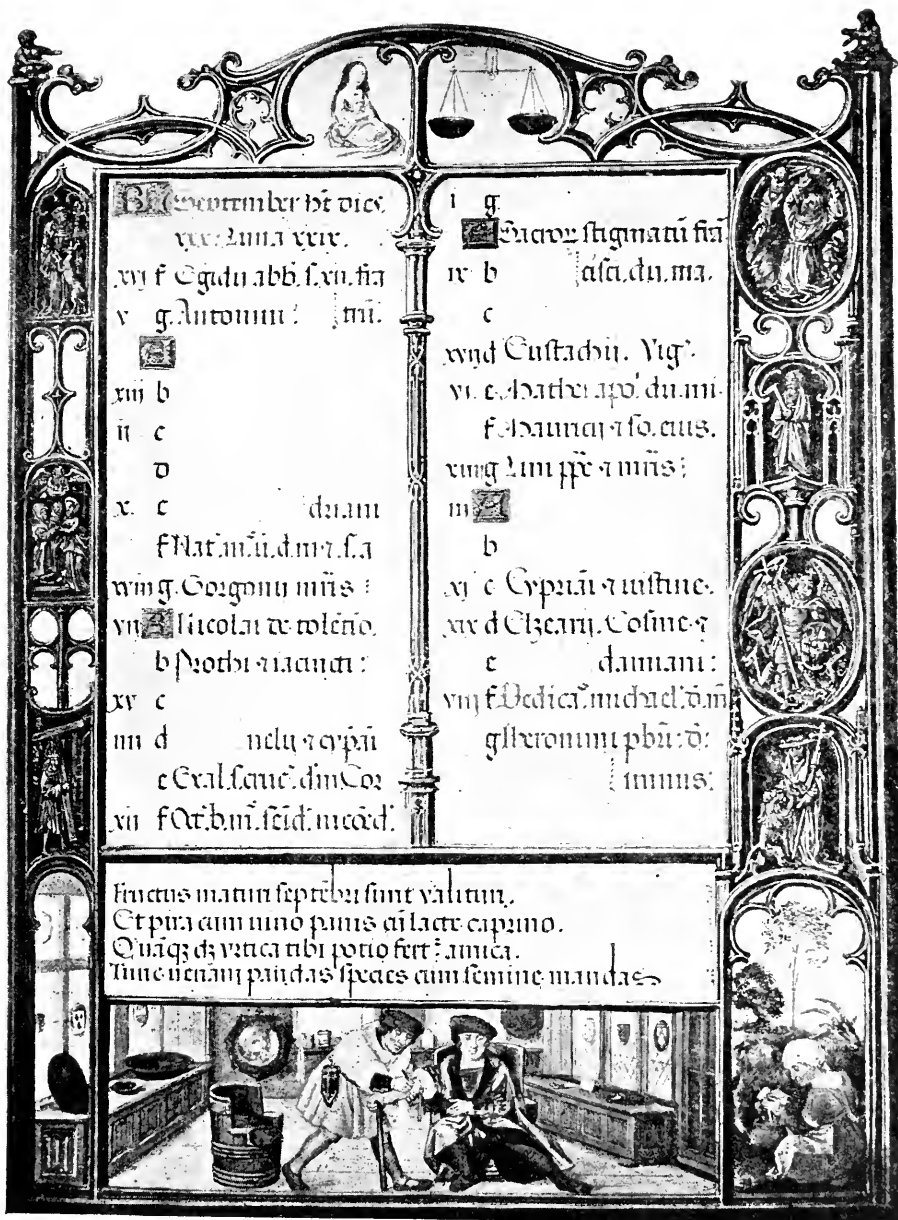 September ht dies
xxx. Luna xxix.
xvi f Egidii abb. s. xii. fra
v g. Antonini: tru.
A
xiii b
ii c
d
x. e driani
f Nat. m. v. d. m. s. a
xviii g. Gorgonii mris:
vii A Nicolai de toletio.
b Prothi ⁊ iacincti:
xv c
iiii d nelii ⁊ cypai
e Exal. scrue. d. m. Cor
xii f Oct. b. m. scid.
i g.
A Sacroꝝ stigmatū frā
ix b cisci. du. ma.
c
xvii d Eustachii. Vigᵃ.
vi. e Mathei apo. du. mi.
f Mauricii ⁊ so. eius.
xiiii g Lini pp̄e ⁊ mr̄is:
iii A
b
xi c Cypriāi ⁊ iustine.
xix d Elzearii. Cosme ⁊
e damiani:
viii f Dedicaᵒ. michael. d. m̄
g Iheronimi pbri: d:
minus:
Fructus maturi septēbri sunt valituri.
Et pira cum uino panis cū lacte caprino.
Quāqꝫ dꝫ vrtica tibi potio fert amica.
Tunc uenam pandas species cum semine mandas